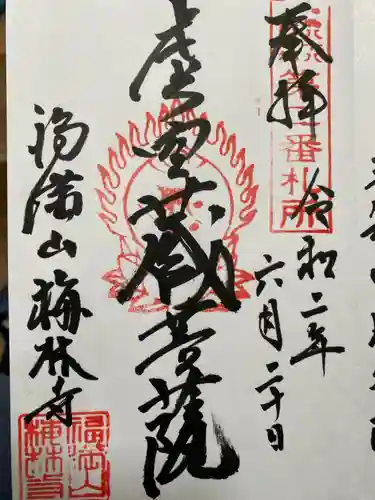 奉拝
令和二年
六月二十日
虚空蔵菩薩
福満山梅林寺
第
番札所
梅林寺